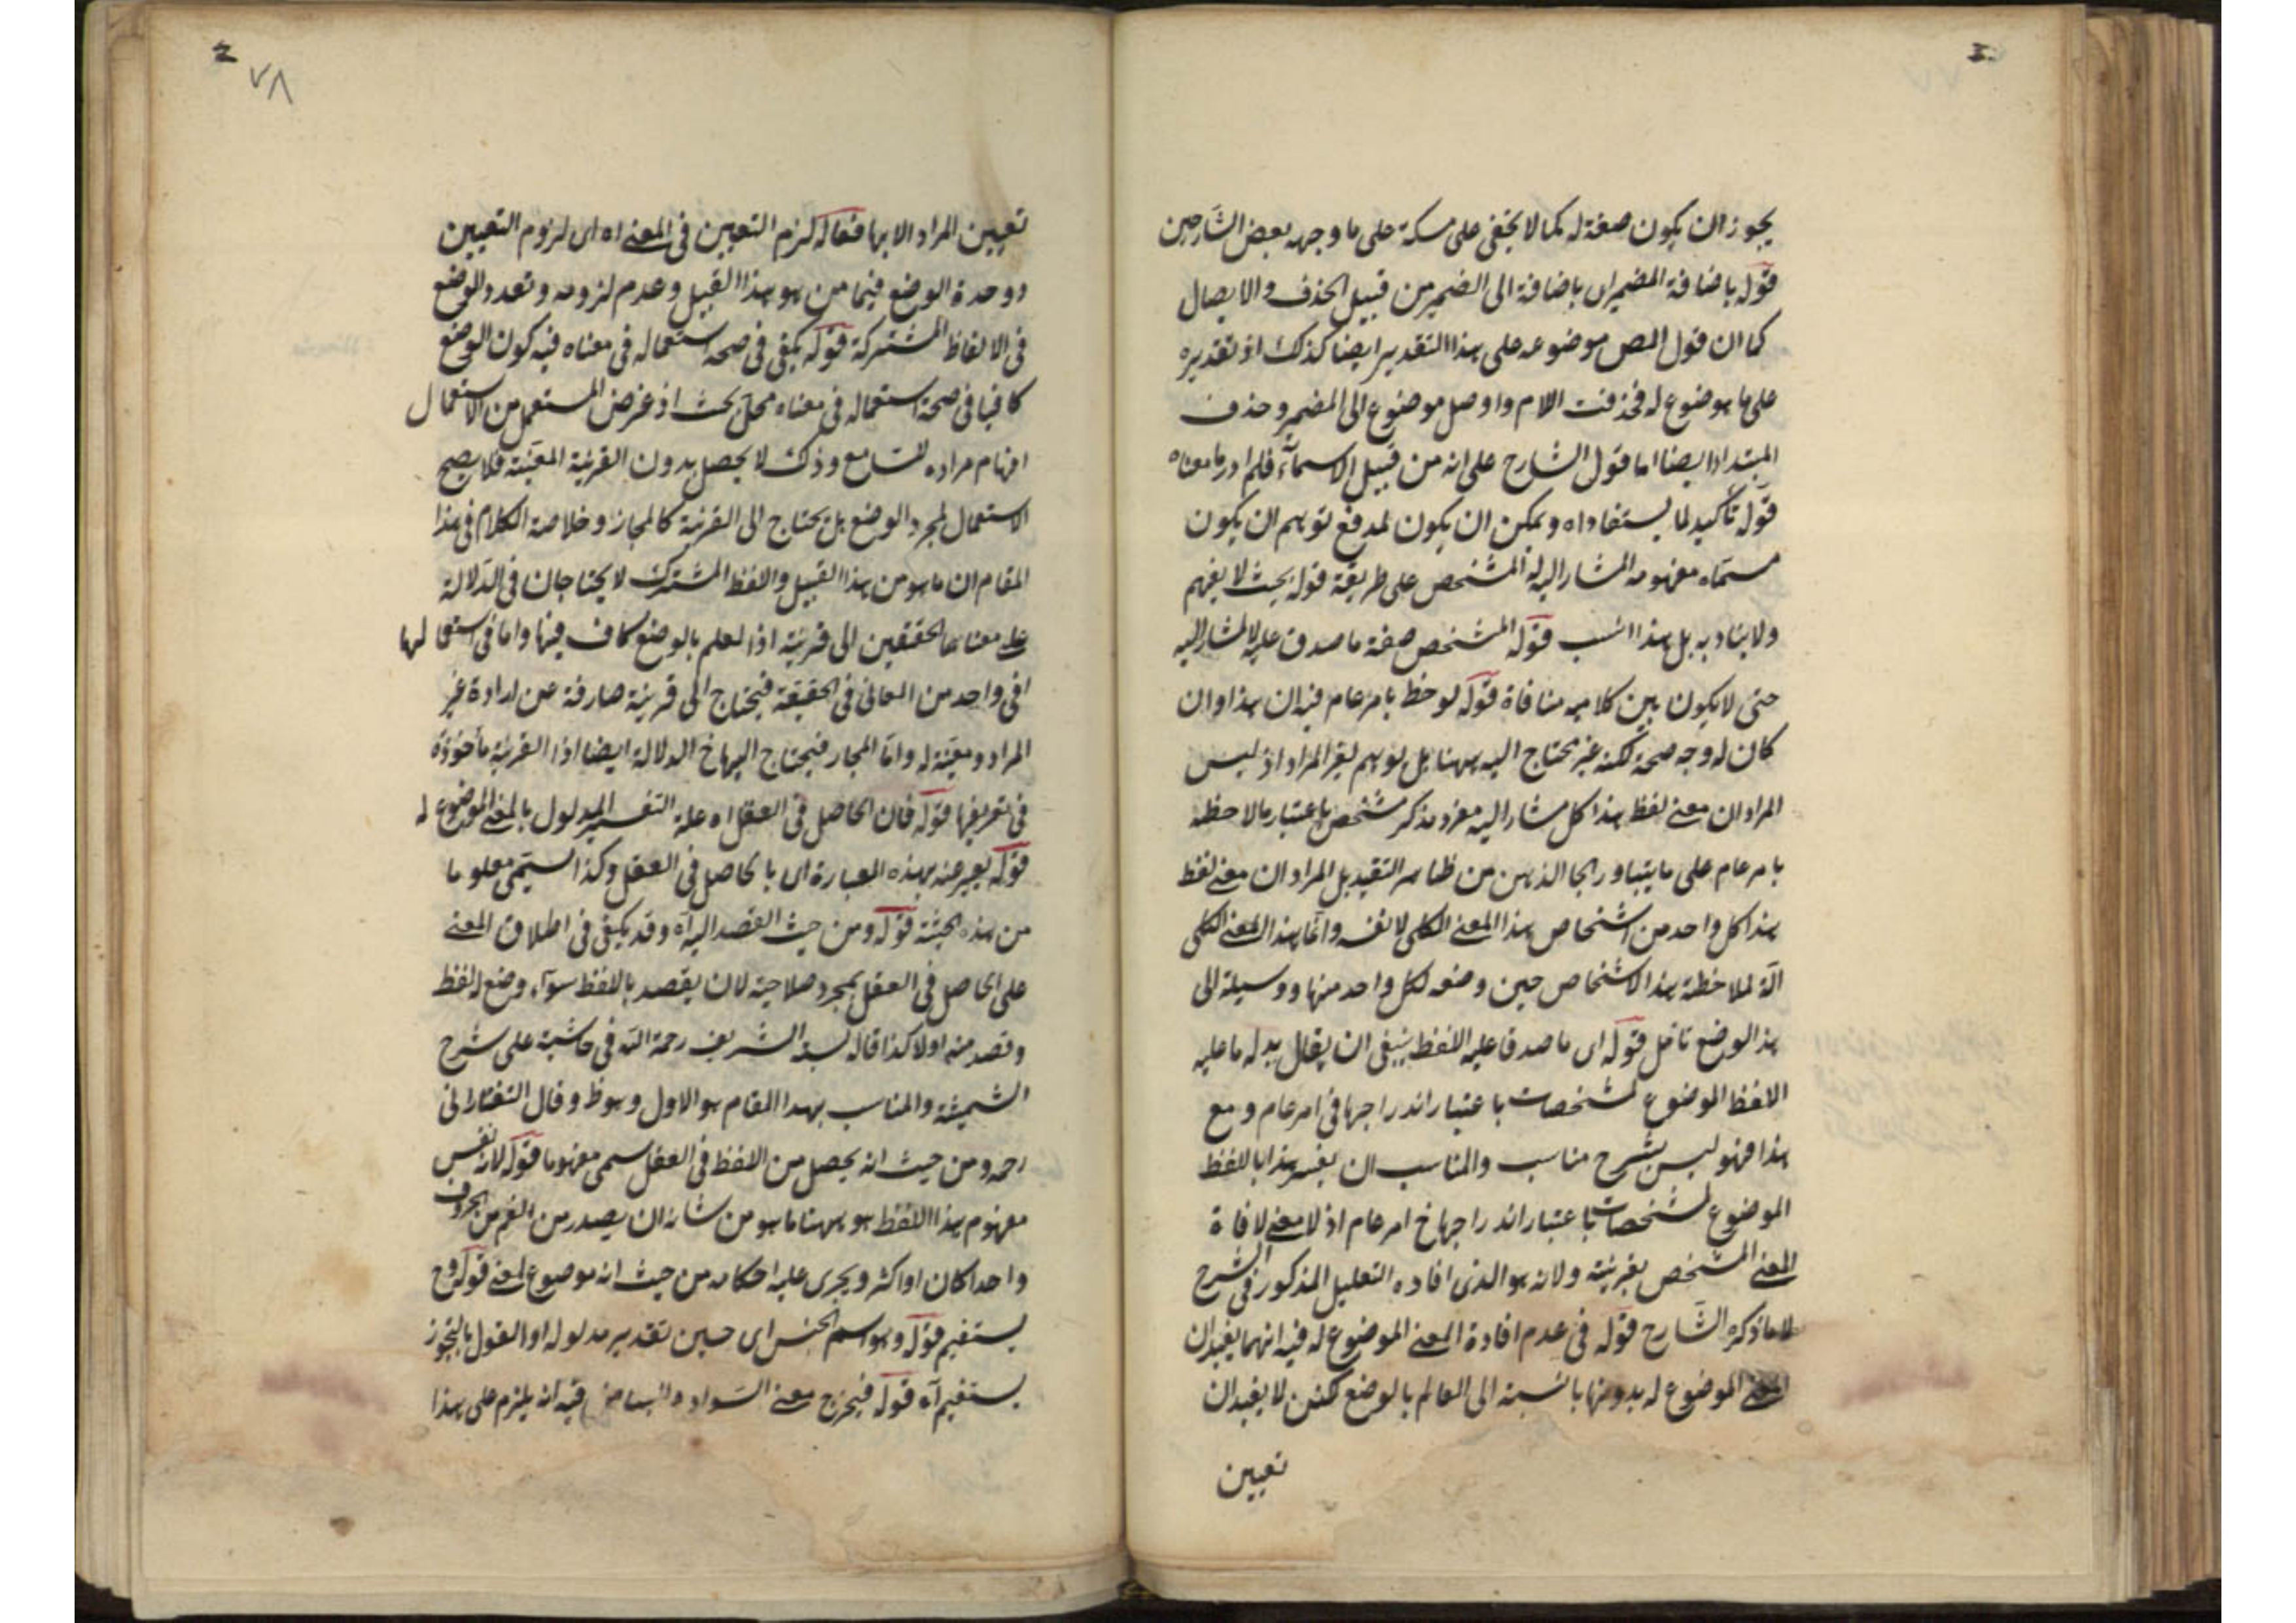 يجوز ان يكون صفة له كما لا يخفى على مسكة على ما وجهه بعض الشارحين
قوله باضافة المضمر اى باضافة الى الضمير من قبيل الحذف والايصال
كما ان قول المص موضوعه على هذا التقدير ايضا كذلك اذ تقديره
على ما هو ضوع له فحذفت اللام واوصل موضوع الى المضمر وحذف
المبتدا ايضا اما قول الشارح على انه من قبيل الاسماء فلم ادر ما معناه
قوله تأكيد لما يستفاد اه ويمكن ان يكون لمدفع توهم ان يكون
مسماه مفهومه المشار اليه المشخص على طريقة قوله بحيث لا يفهم
ولا يفاد به بل هذا انسب قوله المشخص صفة ما صدق عليه لا لمشار اليه
حتى لا يكون بين كلاميه منافاة قوله لوحظ بامر عام فيه ان هذا وان
كان له وجه صحة لكنه غير محتاج اليه ههنا بل توهم لغير المراد اذ ليس
المراد ان معنى لفظ هذا كل مشار اليه مفرد مذكر مشخص باعتبار ملاحظة
بامر عام على ما يتبادر الى الذهن من ظاهر التقييد بل المراد ان معنى لفظ
هذا كل واحد من اشخاص هذا المعنى الكلى لا نفسه وانما هذا المعنى الكلى
آلة لملاحظة هذا الاشخاص حين وضعه لكل واحد منها ووسيلة الى
هذ الوضع تأمل قوله اى ما صدقا عليه اللفظ ينبغى ان يقال بدله ما عليه
اللفظ الموضوع لمشخصات باعتبار اندراجها فى امر عام ومع
هذا فهو ليس بشرح مناسب والمناسب ان يفسر هذا باللفظ
الموضوع لمشخصات باعتبار اندراجها فى امر عام اذ لا معنى لافادة
المعنى المشخص بقرينة ولانه هو الذى افاده التعليل المذكور فى الشرح
لا ما ذكره الشارح قوله فى عدم افادة المعنى الموضوع له فيه انهما يفيدان
المعنى الموضوع له بدونها بالنسبة الى العالم بالوضع لكن لا يفيدان
تعيين
٧٨
تعيين المراد الا بها فقاله لزم التعيين فى المعنى اه اى لزوم التعيين
ووحدة الوضع فيما من هو هذا القبيل وعدم لزومه وتعدد الوضع
فى الالفاظ المشتركة قوله يكفى فى صحة استعماله فى معناه فيه كون الوضع
كافيا فى صحة استعماله فى معناه محل بحث اذ غرض المستعمل من الاستعمال
افهام مراده لسامع وذلك لا يحصل بدون القرينة المعينة فلا يصح
الاستعمال لمجرد الوضع بل يحتاج الى القرينة كالمجاز وخلاصة الكلام فى هذا
المقام ان ما هو من هذا القبيل واللفظ المشترك لا يحتاجان فى الدلالة
على معناهما الحقيقين الى قرينة اذ العلم بالوضع كاف فيها واما فى استعمالهما
فى واحد من المعانى فى الحقيقة فيحتاج الى قرينة صارفة عن ارادة غير
المراد ومعينة له واما المجاز فيحتاج اليها فى الدلالة ايضا اذ القرينة مأخوذة
فى تعريفها قوله فان الحاصل فى العقل اه علة التفسير المدلول بالمعنى الموضوع له
قوله يعبر عنه بهذه العبارة اى بالحاصل فى العقل وكذا يسمى معلوما
من هذه الحيثية قوله ومن حيث القصد اليه آه وقد يكفى فى اطلاق المعنى
على الحاصل فى العقل بمجرد صلاحيته لان يقصد باللفظ سواء وضع له لفظ
وقصد منه اولا كذا قاله السيد الشريف رحمه الله فى حاشيته على شرح
الشمسية والمناسب بهذا المقام هو الاول وهو ظ وقال التفتازانى
رحمه ومن حيث انه يحصل من اللفظ فى العقل سمى مفهوما قوله لانه نفس
مفهوم هذا اللفظ هو ههنا ما هو من شانه ان يصدر من الفم من الحروف
واحدا كان او اكثر ويجرى عليه احكامه من حيث انه موضوع لمعنى قوله وح
يستقيم قوله وهو اسم الجنس اى حين تقدير مدلوله او القول بالتجوز
يستقيم آه قوله فيخرج معنى السواد والبياض فيه انه يلزم على هذا